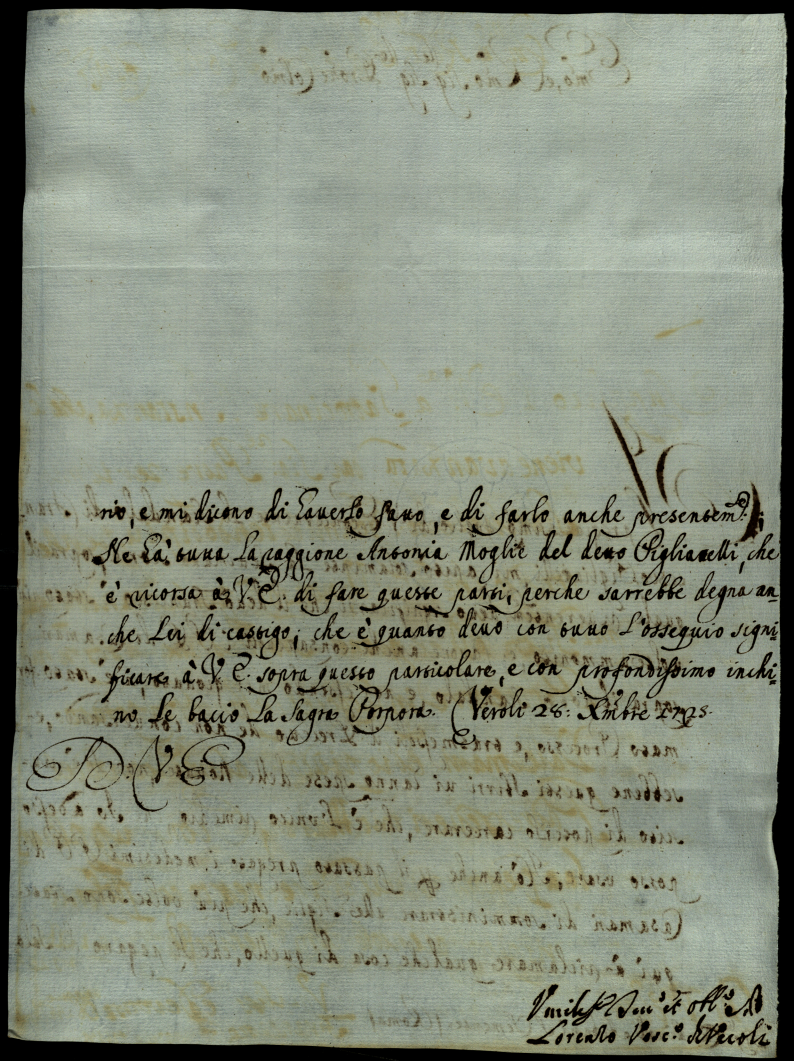 rio, e mi dicono di haverlo fatto, e di farlo anche presentem.e;
Ne hà tutta la raggione Antonia Moglie del detto Pigliavelli, che
è ricorsa à V. E. di fare queste parti, perche sarrebbe degna an-
che Lei di castigo, che è quanto devo con tutto l'ossequio signi-
ficare à V. E. sopra questo particolare, e con profondissimo inchi-
no le bacio la Sagra Porpora. Veroli 28: Xmbre 1725.
D V E
Umiliss. Dev.o et Obl.o
Lorenzo Vesc.o di Veroli